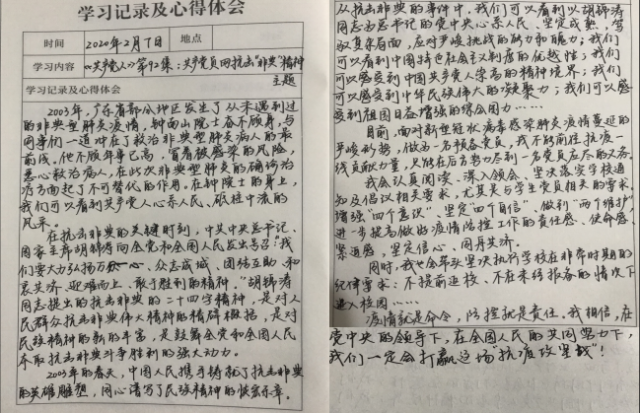 学习记录及心得体会
时间 2020年2月7日 地点
学习内容 《共产党人》第92集：共产党员网抗击"非典"精神
主题
学习记录及心得体会
2003年，广东省部分地区发生了从未遇到过
的非典型肺炎疫情，钟南山院士奋不顾身，与
同事们一道冲在了救治非典型肺炎病人的最
前线，他不顾年事已高，冒着被感染的风险，
悉心救治病人，在此次非典型肺炎的确诊治
疗方面起了不可替代的作用，在钟院士的身上，
我们可以看到共产党人心系人民、砥柱中流的
风采。
在抗击非典的关键时刻，中共中央总书记、
国家主席胡锦涛向全党和全国人民发出号召："我
们要大力弘扬万众一心、众志成城、团结互助、和
衷共济、迎难而上、敢于胜利的精神。"胡锦涛
同志提出的抗击非典的二十四字精神，是对人
民群众抗击非典伟大精神的精辟概括，是对
民族精神的新的丰富，是鼓舞全党和全国人民
夺取抗击非典斗争胜利的强大动力。
2003年的春天，中国人民携手铸就了抗击非典
的英雄雕塑，同心谱写了民族精神的快宏乐章。
从抗击非典的事件中，我们可以看到以胡锦涛
同志为总书记的党中央心系人民、坚定成熟、驾
驭复杂局面，应对严峻挑战的能力和魄力；我们
可以看到中国特色社会主义制度的优越性；我们
可以感受到中国共产党人崇高的精神境界；我们
可以感受到中华民族伟大的凝聚力；我们可以感
受到祖国日益增强的综合国力……
目前，面对新型冠状病毒感染肺炎疫情蔓延的
严峻形势，做为一名预备党员，我不能前往抗疫一
线贡献力量，只能在后方努力尽到一名党员应尽的义务。
我会认真阅读、深入领会、坚决落实学校通
知及倡议相关要求，尤其是与学生党员相关的要求，
增强"四个意识"、坚定"四个自信"、做到"两个维护"
进一步提高做好疫情防控工作的责任感、使命感、
紧迫感，坚定信心、同舟共济。
同时，我也会牢头坚决执行学校在非常时期的
纪律要求：不提前返校、不在未经报备的情况下
进入校园……
疫情就是命令，防控就是责任。我相信，在
党中央的领导下，在全国人民的共同努力下，
我们一定会打赢这场"抗疫攻坚战"！